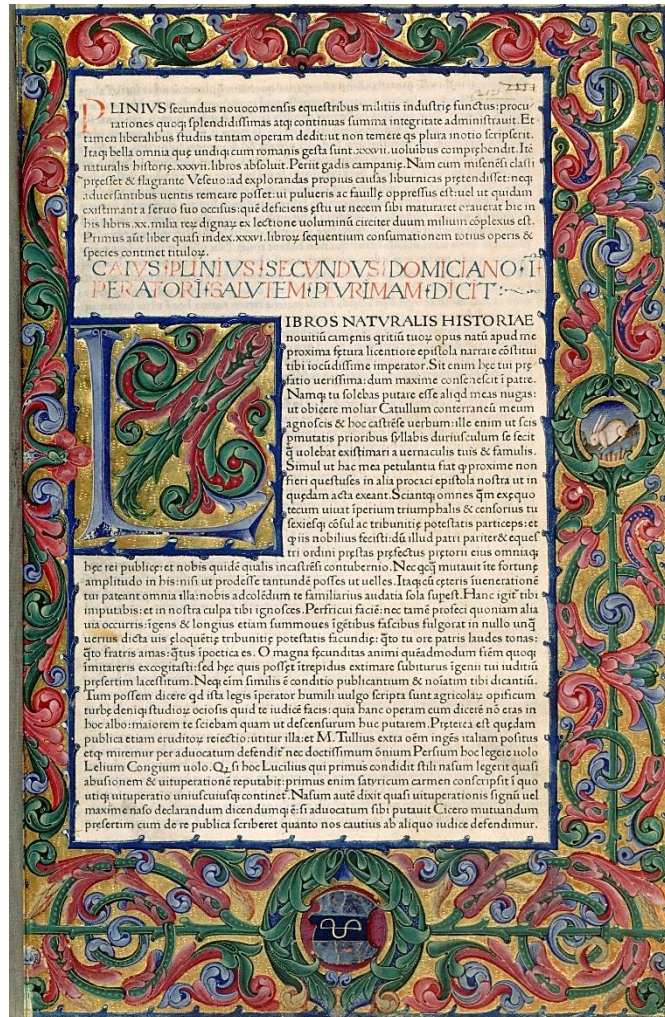 PLINIVS secundus nouocomensis equestribus militiis industrię functus: procu
rationes quoqȝ splendidissimas atqȝ continuas summa integritate administrauit. Et
tamen liberalibus studiis tantam operam dedit: ut non temere qs plura inotio scripserit.
Itaqȝ bella omnia quę undiqȝ cum romanis gesta sunt .xxxvii. uoluibus compręhendit. Itē
naturalis historię .xxxvii. libros absoluit. Periit gadis campanię. Nam cum misenēsi classi
pręesset & flagrante Vesęuo: ad explorandas propius causas liburnicas prętendisset: neqȝ
aduersantibus uentis remeare posset: ui pulueris ac fauillę oppressus est: uel ut quidam
existimant a seruo suo occisus: quē deficiens ęstu ut necem sibi maturaret orauerat hic in
his libris .xx. milia reꝝ dignaꝝ ex lectione uoluminū circiter duum milium cōplexus est.
Primus aūt liber quasi index .xxxvi. libroꝝ sequentium consumationem totius operis &
species continet tituloꝝ.
CAIVS PLINIVS SECVNDVS DOMICIANO I
PERATORI SALVTEM PLVRIMAM DICIT
LIBROS NATVRALIS HISTORIAE
nouitiū camęnis qritiū tuoꝝ opus natū apud me
proxima fętura licentiore epistola narrare cōstitui
tibi iocūdissime imperator. Sit enim hęc tui prę
fatio uerissima: dum maxime consenescit i patre.
Namqȝ tu solebas putare esse aliqd meas nugas:
ut obicere moliar Catullum conterraneū meum
agnoscis & hoc castrēse uerbum: ille enim ut scis
pmutatis prioribus syllabis duriusculum se fecit
q̄ uolebat existimari a uernaculis tuis & famulis.
Simul ut hac mea petulantia fiat qȝ proxime non
fieri questus es in alia procaci epistola nostra ut in
quędam acta exeant. Sciantqȝ omnes q̄m exęquo
tecum uiuat īperium triumphalis & censorius tu
sexiesqȝ cōsul ac tribunitię potestatis particeps: et
qȝ iis nobilius fecisti: dū illud patri pariter & eques
tri ordini pręstas pręfectus prętorii eius omniaqȝ
hęc rei publicę: et nobis quidē qualis incastrēsi contubernio. Nec qcq̄ mutauit īte fortunę
amplitudo in his: nisi ut prodesse tantundē posses ut uelles. Itaqȝ cū cęteris īuenerationē
tui pateant omnia illa: nobis adcolēdum te familiarius audatia sola supest. Hanc igit tibi
imputabis: et in nostra culpa tibi ignosces. Perfricui faciē: nec tamē profeci quoniam alia
uia occurris: īgens & longius etiam summoues īgētibus fascibus fulgorat in nullo unq̄
uerius dicta uis eloquētię tribunitię potestatis facundię: q̄to tu ore patris laudes tonas:
q̄to fratris amas: q̄tus īpoetica es. O magna fęcunditas animi quēadmodum fiēm quoqȝ
imitareris excogitasti: sed hęc quis posset ītrepidus extimare subiturus īgenii tui iuditiū
pręsertim lacessitum. Neqȝ eim similis ē conditio publicantium & noīatim tibi dicantiū.
Tum possem dicere qd ista legis īperator humili uulgo scripta sunt agricolaꝝ opificum
turbę deniqȝ studioꝝ ociosis quid te iudicē facis: quia hanc operam cum dicerē nō eras in
hoc albo: maiorem te sciebam quam ut descensurum huc putarem. Pręterea est quędam
publica etiam eruditoꝝ reiectio: utitur illa: et M. Tullius extra oēm ingēii italiam positus
etqȝ miremur per aduocatum defendit nec doctissimum ōnium Persum hoc legere uolo
Lelium Congium uolo. Qȝ si hoc Lucilius qui primus condidit stili nasum legerit quasi
abusionem & uituperationē reputabit: primus enim satyricum carmen conscripsit ī quo
utiqȝ uituperatio uniuscuiusqȝ continet. Nasum autē dixit quasi uituperationis signū uel
maxime naso declarandum dicendumqȝ ē: si aduocatum sibi putauit Cicero mutuandum
pręsertim cum de re publica scriberet quanto nos cautius ab aliquo iudice defendimur.